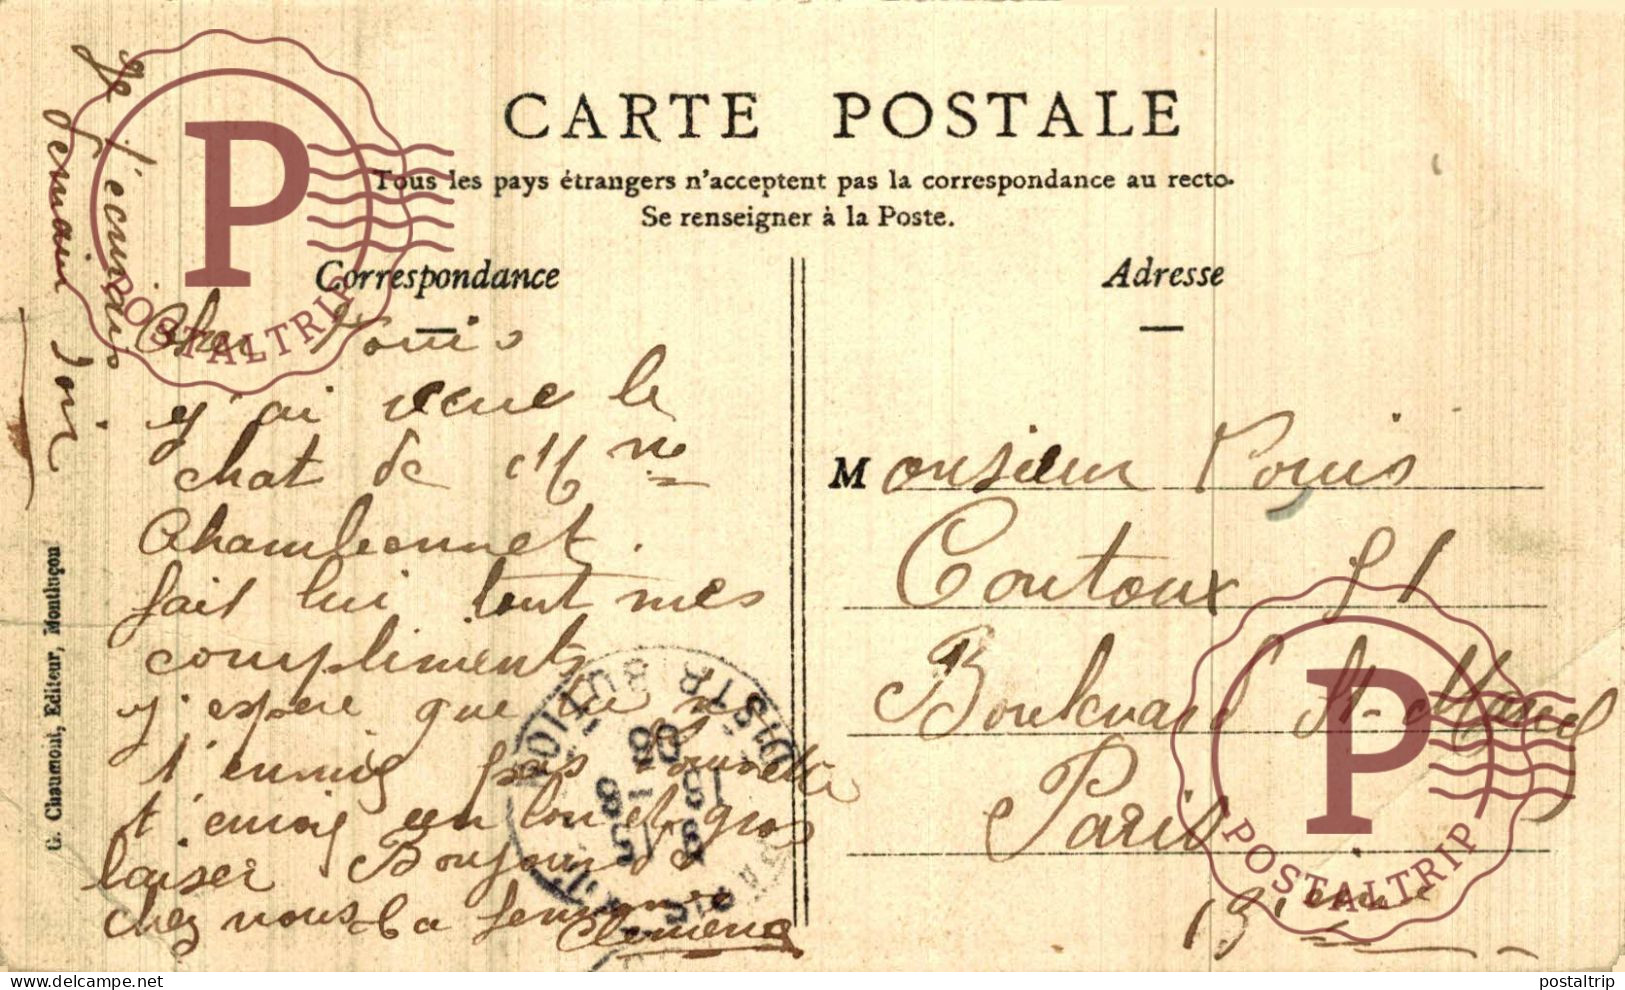 CARTE POSTALE
Tous les pays étrangers n'acceptent pas la correspondance au recto.
Se renseigner à la Poste.
Correspondance
Adresse
Je t'ecrirais
demain soir
Cher Louis
j'ai venue le
chat de Mme
Chambonnet.
fait lui tout mes
compliments
j'espere que tu ne
t'ennuis pas
t'envoie un bon et gros
baiser Bonjour
chez vous ta
Clemence
Monsieur Louis
Coutoux 51
Boulevard St-Marcel
Paris
13
G. Chaumont, Editeur, Montluçon
DISTRIBUTION
P
POSTALTRIP
P
POSTALTRIP
www.delcampe.net
postaltrip